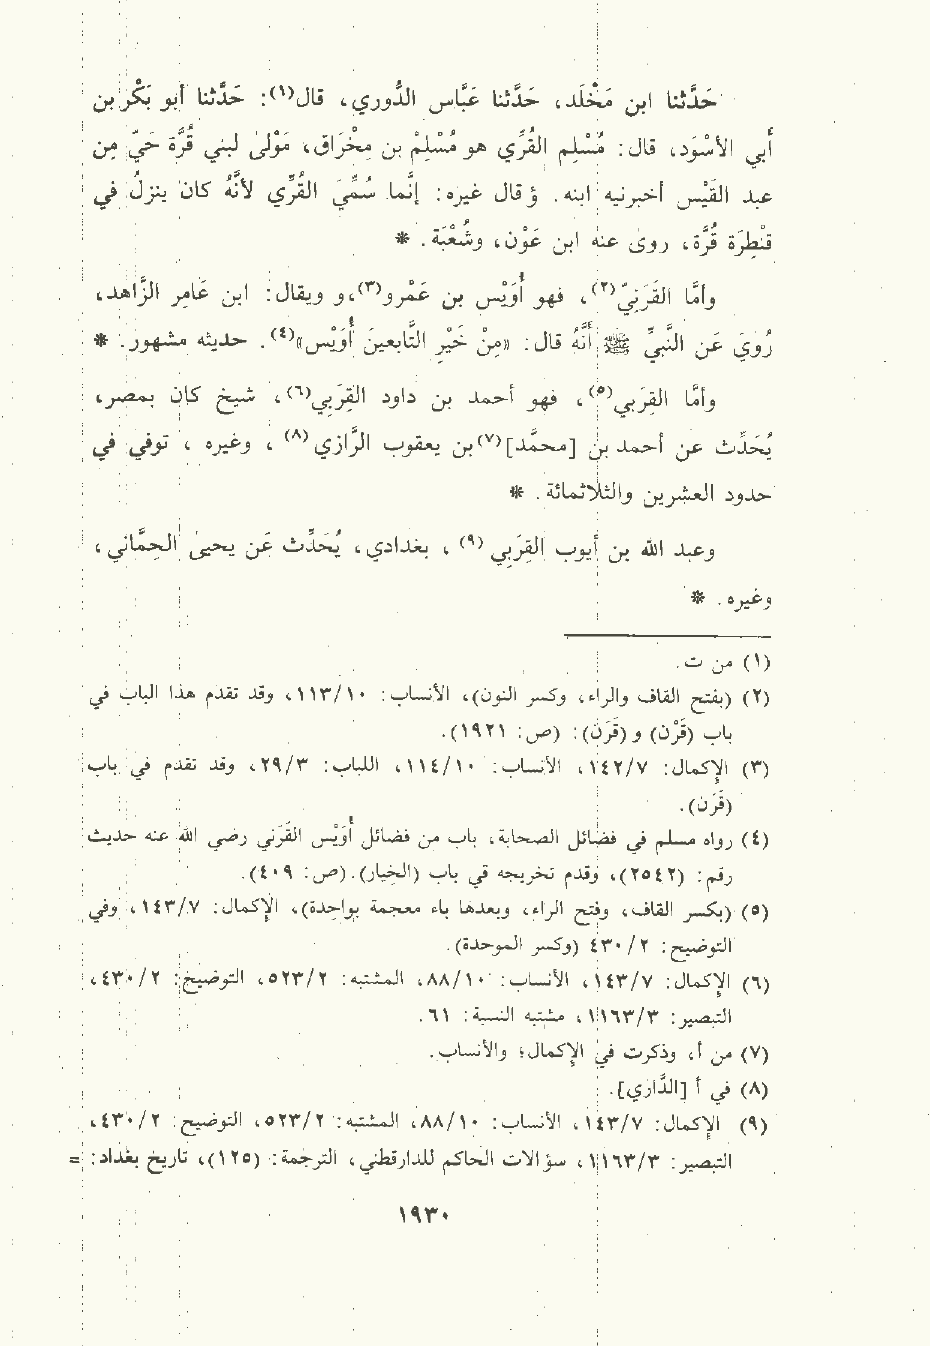 حَدَّثنا ابن مَخْلَد، حَدَّثنا عَبَّاس الدُّوري، قال(١): حَدَّثنا أبو بَكْر بن
أَبي الأسْوَد، قال: مُسْلِم القُرِّي هو مُسْلِمْ بن مِخْرَاق، مَوْلىٰ لبني قُرَّة حَيّ مِن
عبد القَيْس أخبرنيه ابنه. وقال غيره: إنَّما سُمِّيَ القُرِّي لأنَّهُ كان ينزلُ في
قنْطِرَة قُرَّة، روىٰ عنه ابن عَوْن، وشُعْبَة. *
وأمَّا القَرَنِيّ(٢)، فهو أُوَيْس بن عَمْرو(٣)،و ويقال: ابن عَامِر الزَّاهد،
رُويَ عَن النَّبيِّ ﷺ أَنَّهُ قال: «مِنْ خَيْر التَّابعينَ أُوَيْس»(٤). حديثه مشهور. *
وأمَّا القِرَبي(٥)، فهو أحمد بن داود القِرَبِي(٦)، شيخ كان بمصر،
يُحَدِّث عن أحمد بن [محمَّد](٧)بن يعقوب الرَّازي(٨)، وغيره، توفي في
حدود العشرين والثلاثمائة. *
وعبد الله بن أيوب القِرَبِي(٩)، بغدادي، يُحَدِّث عَن يحيىٰ الحِمَّاني،
وغيره. *
(١) من ت.
(٢) (بفتح القاف والراء، وكسر النون)، الأنساب: ١١٣/١٠، وقد تقدم هذا الباب في
باب (قَرْن) و (قَرَن): (ص: ١٩٢١).
(٣) الإكمال: ١٤٢/٧، الأنساب: ١١٤/١٠، اللباب: ٢٩/٣، وقد تقدم في باب
(قَرَن).
(٤) رواه مسلم في فضائل الصحابة، باب من فضائل أُوَيْس القَرَني رضي الله عنه حديث
رقم: (٢٥٤٢)، وقدم تخريجه في باب (الخِيار).(ص: ٤٠٩).
(٥) (بكسر القاف، وفتح الراء، وبعدها باء معجمة بواحِدة)، الإكمال: ١٤٣/٧، وفي
التوضيح: ٤٣٠/٢ (وكسر الموحدة).
(٦) الإكمال: ١٤٣/٧، الأنساب: ٨٨/١٠، المشتبه: ٥٢٣/٢، التوضيح: ٤٣٠/٢،
التبصير: ١١٦٣/٣، مشتبه النسبة: ٦١.
(٧) من أ، وذكرت في الإكمال؛ والأنساب.
(٨) في أ [الدَّاري].
(٩) الإكمال: ١٤٣/٧، الأنساب: ٨٨/١٠، المشتبه: ٥٢٣/٢، التوضيح: ٤٣٠/٢،
التبصير: ١١٦٣/٣، سؤالات الحاكم للدارقطني، الترجمة: (١٢٥)، تاريخ بغداد: =
١٩٣٠